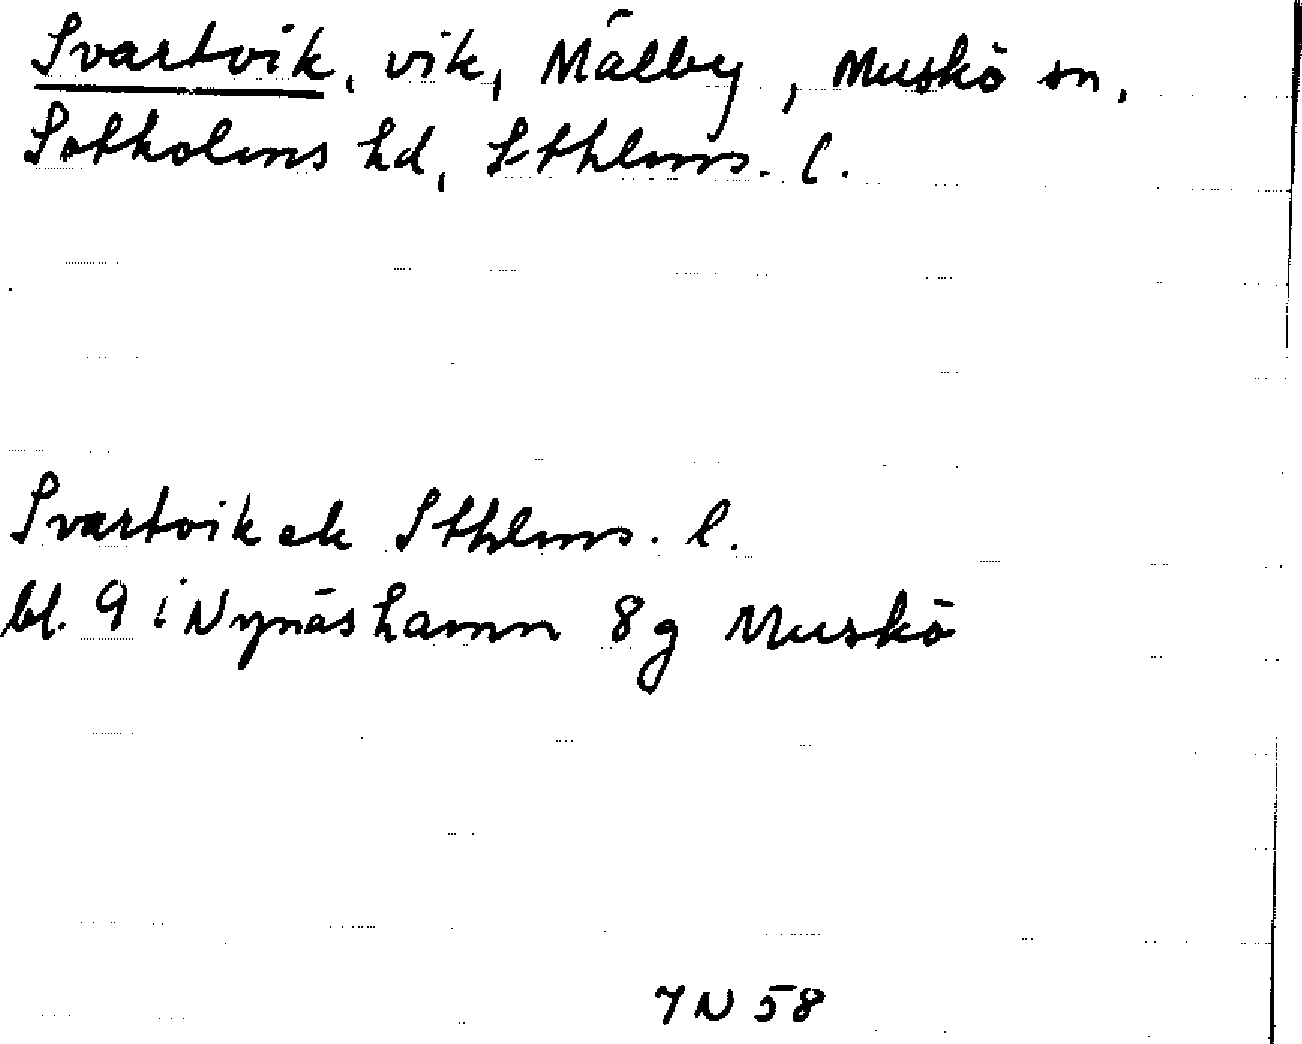 Svartvik, vik, Mälby, Muskö sn,
Sotholms hd, Sthlms. l.
Svartvik ek Sthlms. l.
bl. 9 i Nynäshamn 8g Muskö
7 N 58